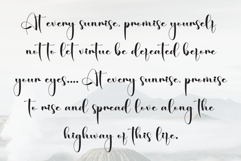 At every sunrise, promise yourself
not to let virtue be defeated before
your eyes.... At every sunrise, promise
to rise and spread love along the
highway of this life.